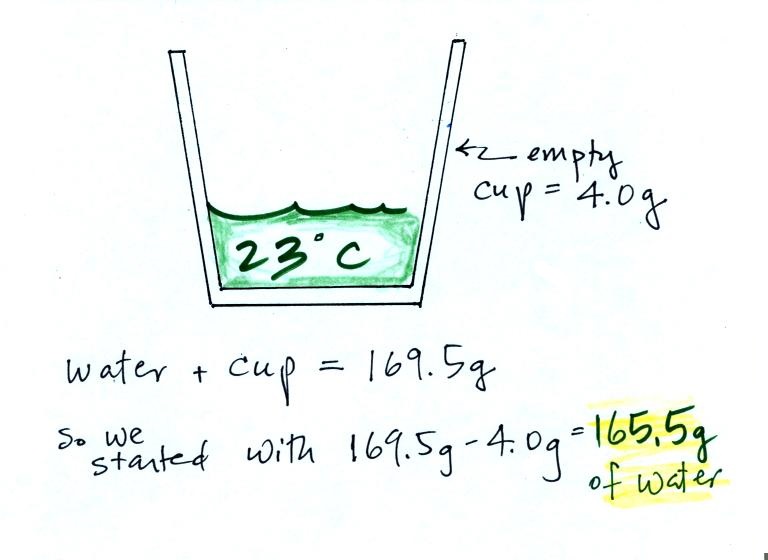 ← empty
cup = 4.0g
23°C
water + cup = 169.5g
So we
started with 169.5g - 4.0g = 165.5g
of water